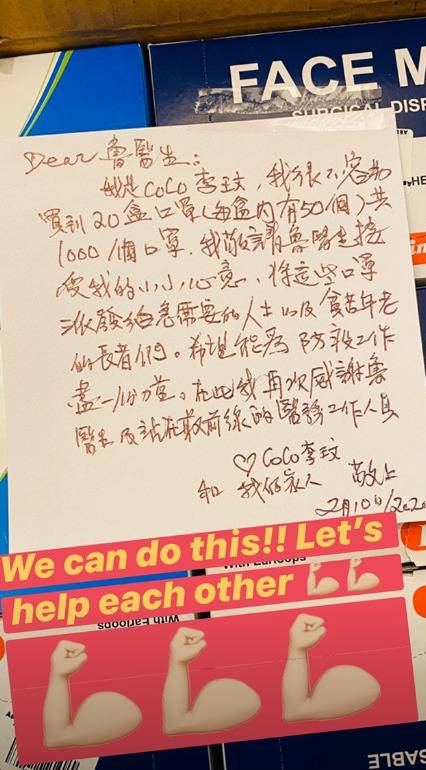 FACE M
SURGICAL DISP
Dear 魯醫生：
我是CoCo李玟，我很不容易
買到20盒口罩（每盒內有50個）共
1000個口罩，我敬請魯醫生接
受我的小小心意，將這些口罩
派發給急需要的人士以及貧苦年老
的長者們。希望能為防疫工作
盡一份力量。在此我再次感謝魯
醫生及站在最前線的醫務工作人員
♡ CoCo李玟
和 我的家人 敬上
2月10日/2020
We can do this!! Let's
help each other
With Earloops
With Earloops
SABLE